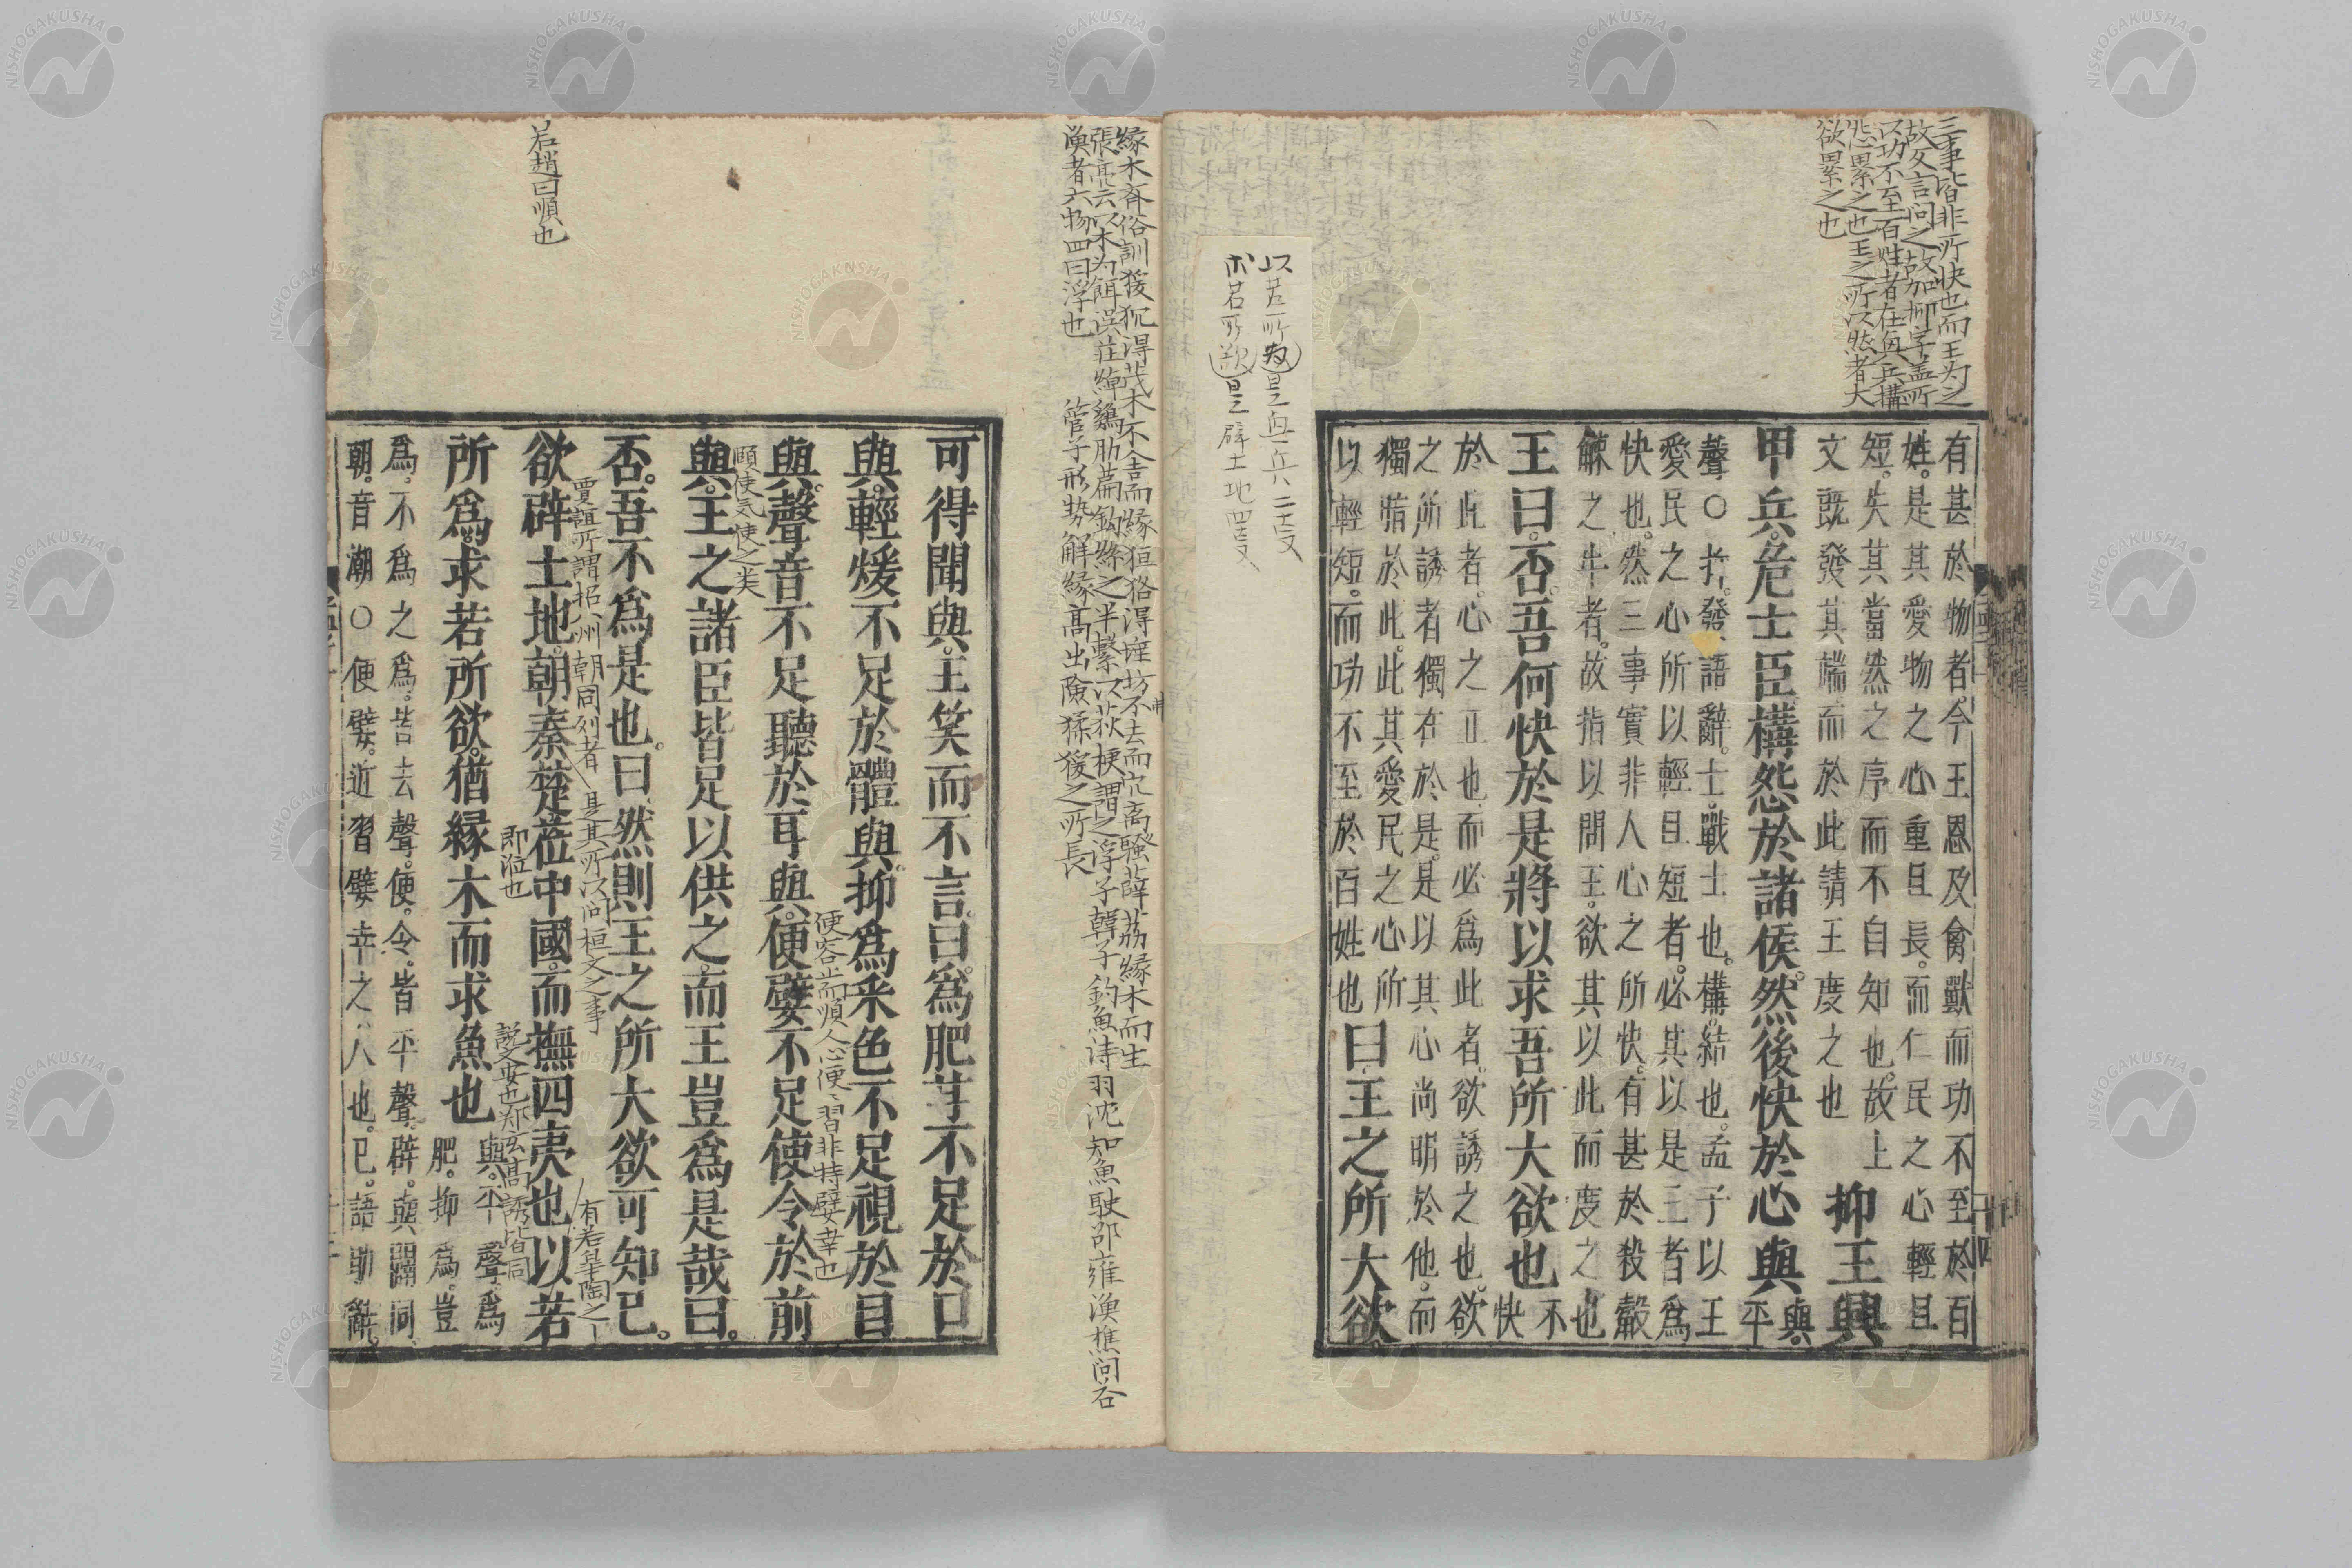 三事皆非所快也而王为之
故反言問之故加抑字盖所
以功不至百姓者在興兵構
怨累之也王之所以然者大
欲累之也
有甚於物者今王恩及禽獸而功不至於百
姓。是其愛物之心重且長。而仁民之心輕且
短。失其當然之序而不自知也。故上
文既發其端而於此請王度之也
抑王興
甲兵。危士臣。構怨於諸侯。然後快於心與
與。
平
聲○抑。發語辭。士。戰士也。構。結也。孟子以王
愛民之心所以輕且短者。必其以是三者爲
快也。然三事實非人心之所快。有甚於殺觳
觫之牛者。故指以問王。欲其以此而度之也
王曰。否。吾何快於是將以求吾所大欲也
不
快
於此者。心之正也而必爲此者。欲誘之也。欲
之所誘者獨在於是。是以其心尚明於他。而
獨暗於此。此其愛民之心所
以輕短。而功不至於百姓也
曰。王之所大欲。
以若所為是興兵二支
求若所欲是辟土地四支
縁木
張亮云以木为餌误莊
漁者六物四曰浮也
管子形势解縁高出險猱猨之所長
可得聞與。王笑而不言。曰。爲肥甘不足於口
與。輕煖不足於體與。抑爲采色不足視於目
便客止而順人心便〻習非特嬖幸也
與。聲音不足聽於耳與。便嬖不足使令於前
頤使気使之类
與。王之諸臣皆足以供之。而王豈爲是哉。曰。
否。吾不爲是也。曰。然則王之所大欲可知已。
賈誼所謂招八州朝同列者
是其所以问桓文之事
有若皐陶之
欲辟土地。朝秦楚。莅中國。而撫四夷也以若
即涖也
說文安也郑玄高誘皆同
所爲。求若所欲。猶縁木而求魚也
與。平聲。爲
肥。抑爲。豈
爲。不爲之爲。皆去聲。便。令。皆平聲。辟。與闢同
朝。音潮○便嬖。近習嬖幸之人也。已。語助辭。
若趙曰順也